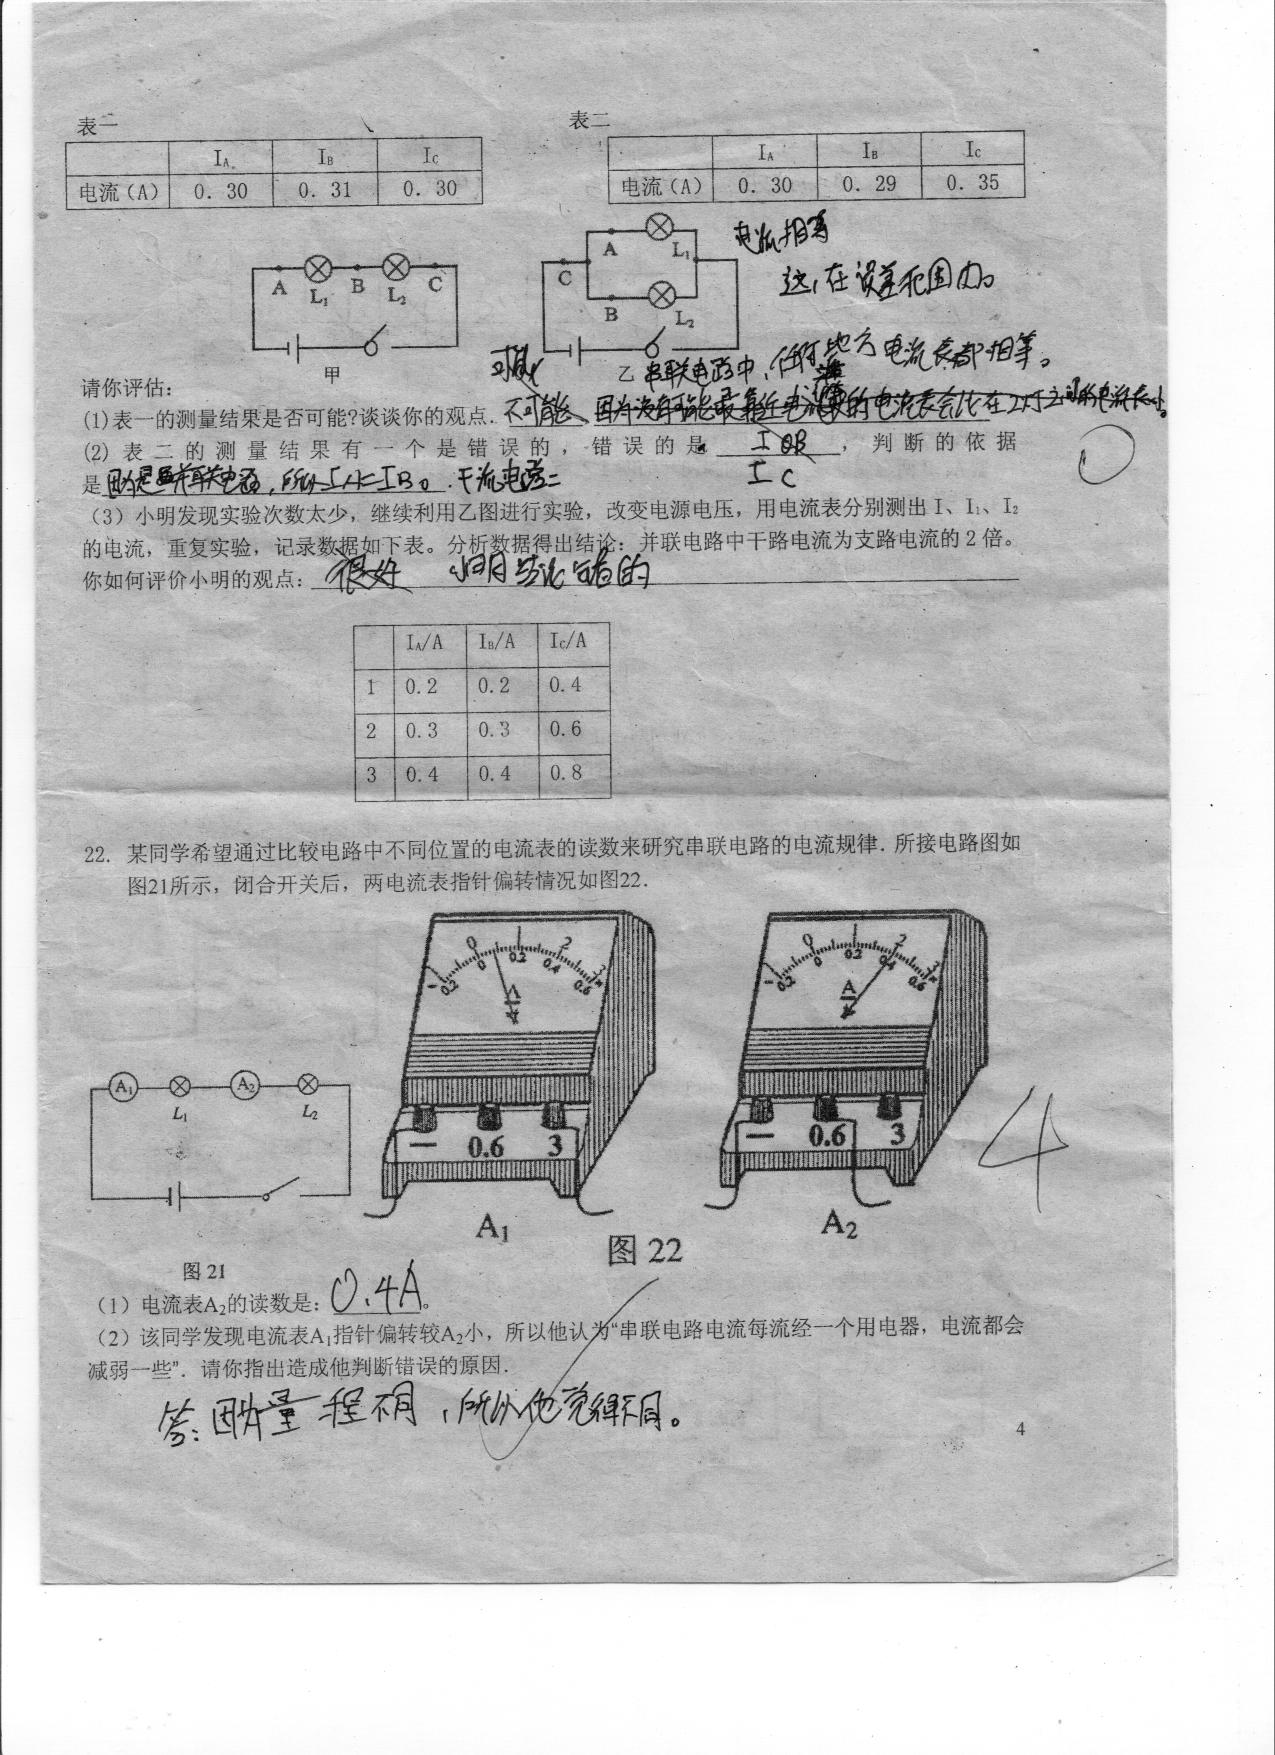 表一
I_A I_B I_C
电流（A） 0.30 0.31 0.30
表二
I_A I_B I_C
电流（A） 0.30 0.29 0.35
A L₁ B L₂ C
甲
A L₁
C
B L₂
乙
电流相等
这,在误差范围内。
可能
串联电路中,任何地方电流表都相等。
请你评估：
(1)表一的测量结果是否可能?谈谈你的观点. 不可能、因为没有可能最靠近电源的电流表会比在2灯之间的电流表小。
(2) 表二的测量结果有一个是错误的，错误的是 I_B ，判断的依据
I_C
是因为是并联电路,所以I_A=I_B。干流电路=
（3）小明发现实验次数太少，继续利用乙图进行实验，改变电源电压，用电流表分别测出 I、I₁、I₂
的电流，重复实验，记录数据如下表。分析数据得出结论：并联电路中干路电流为支路电流的 2 倍。
你如何评价小明的观点： 很好 小明结论是错的
I_A/A I_B/A I_C/A
1 0.2 0.2 0.4
2 0.3 0.3 0.6
3 0.4 0.4 0.8
22. 某同学希望通过比较电路中不同位置的电流表的读数来研究串联电路的电流规律．所接电路图如
图21所示，闭合开关后，两电流表指针偏转情况如图22．
0 1 2 3
0.2 0 0.2 0.4 0.6
A
− 0.6 3
A₁
0 1 2 3
0.2 0 0.2 0.4 0.6
A
− 0.6 3
A₂
A₁ L₁ A₂ L₂
图 21
图 22
4
（1）电流表A₂的读数是： 0.4A 。
（2）该同学发现电流表A₁指针偏转较A₂小，所以他认为“串联电路电流每流经一个用电器，电流都会
减弱一些”．请你指出造成他判断错误的原因．
答：因为量程不同,所以他觉得不同。
4